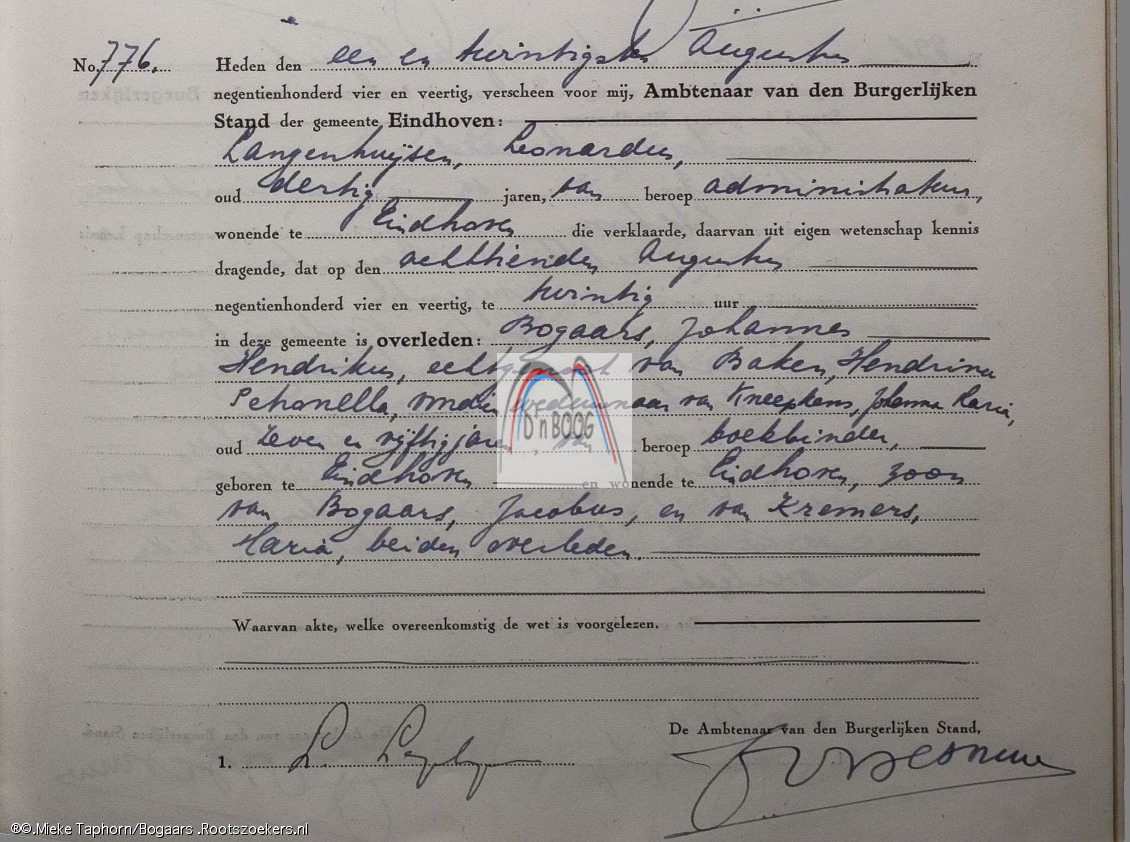 No. 776. Heden den een en twintigsten Augustus
negentienhonderd vier en veertig, verscheen voor mij, Ambtenaar van den Burgerlijken
Stand der gemeente Eindhoven:
Langenhuijsen, Leonardus,
oud dertig jaren, van beroep administrateur,
wonende te Eindhoven die verklaarde, daarvan uit eigen wetenschap kennis
dragende, dat op den achttienden Augustus
negentienhonderd vier en veertig, te twintig uur
in deze gemeente is overleden: Bogaars, Johannes
Hendrikus, echtgenoot van Baken, Hendrina
Petronella, eerder weduwnaar van Kneepkens, Johanna Maria,
oud zeven en vijftig jaren, van beroep boekbinder,
geboren te Eindhoven en wonende te Eindhoven, zoon
van Bogaars, Jacobus, en van Kremers,
Maria, beiden overleden.
D'n BOOG
Waarvan akte, welke overeenkomstig de wet is voorgelezen.
De Ambtenaar van den Burgerlijken Stand,
1.
®©.Mieke Taphorn/Bogaars .Rootszoekers.nl